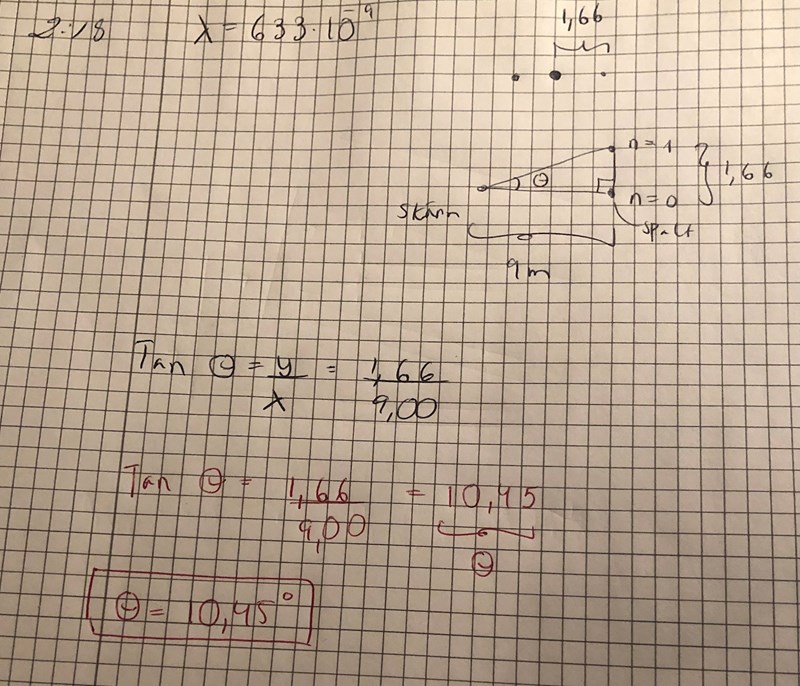 2.18 λ = 633·10⁻⁹
1,66
n=1
θ
1,66
n=0
Skärm
spalt
9m
Tan θ = y/x = 1,66/9,00
Tan θ = 1,66/9,00 = 10,45
θ
θ = 10,45°